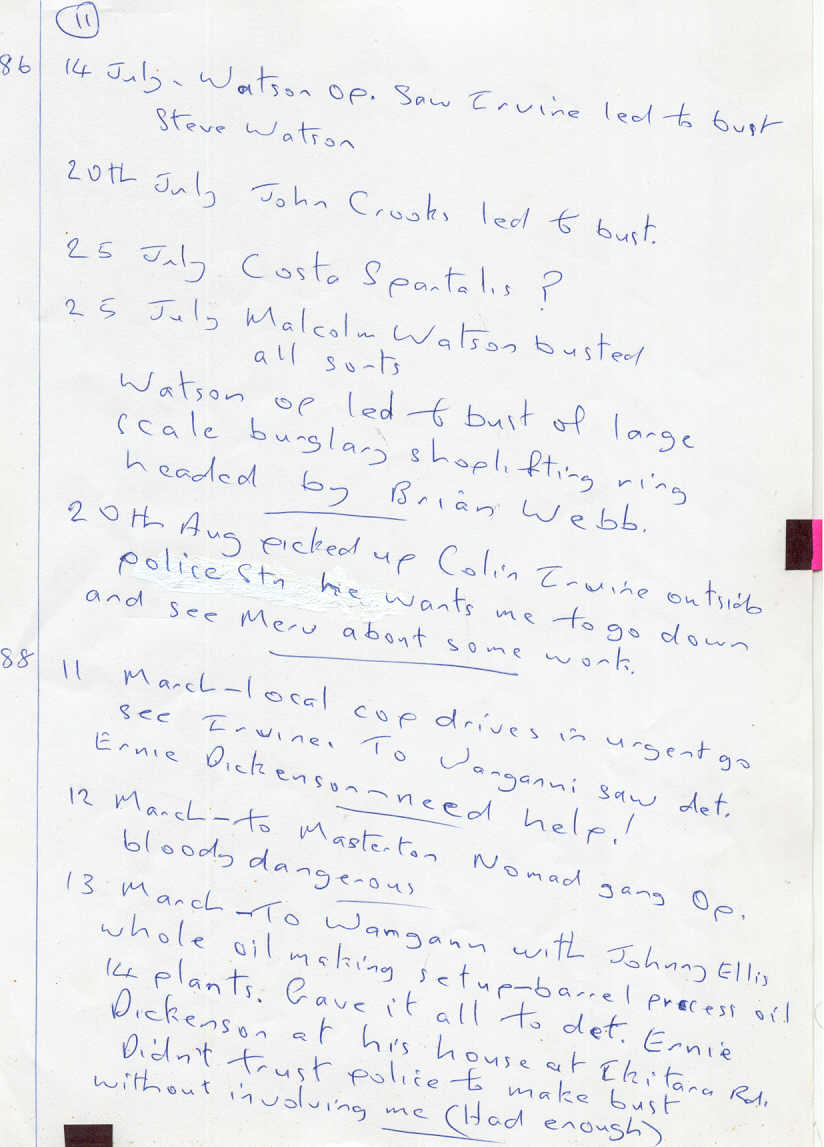 11
86 14 July - Watson Op. Saw Irvine led to bust
Steve Watson
20th July John Crooks led to bust.
25 July Costa Spantalis ?
25 July Malcolm Watson busted
all sorts
Watson op led to bust of large
scale burglary shoplifting ring
headed by Brian Webb.
20th Aug picked up Colin Irwine outside
police Stn he wants me to go down
and see Merv about some work.
88 11 March - local cop drives in urgent go
see Irwine. To Wanganni saw det.
Ernie Dickenson - need help!
12 March - to Masterton Nomad gang Op.
bloody dangerous
13 March - To Wangann with Johnny Ellis
whole oil making setup - barrel press oil
14 plants. Gave it all to det. Ernie
Dickenson at his house at Ikitara Rd.
Didn't trust police to make bust
without involving me (Had enough)